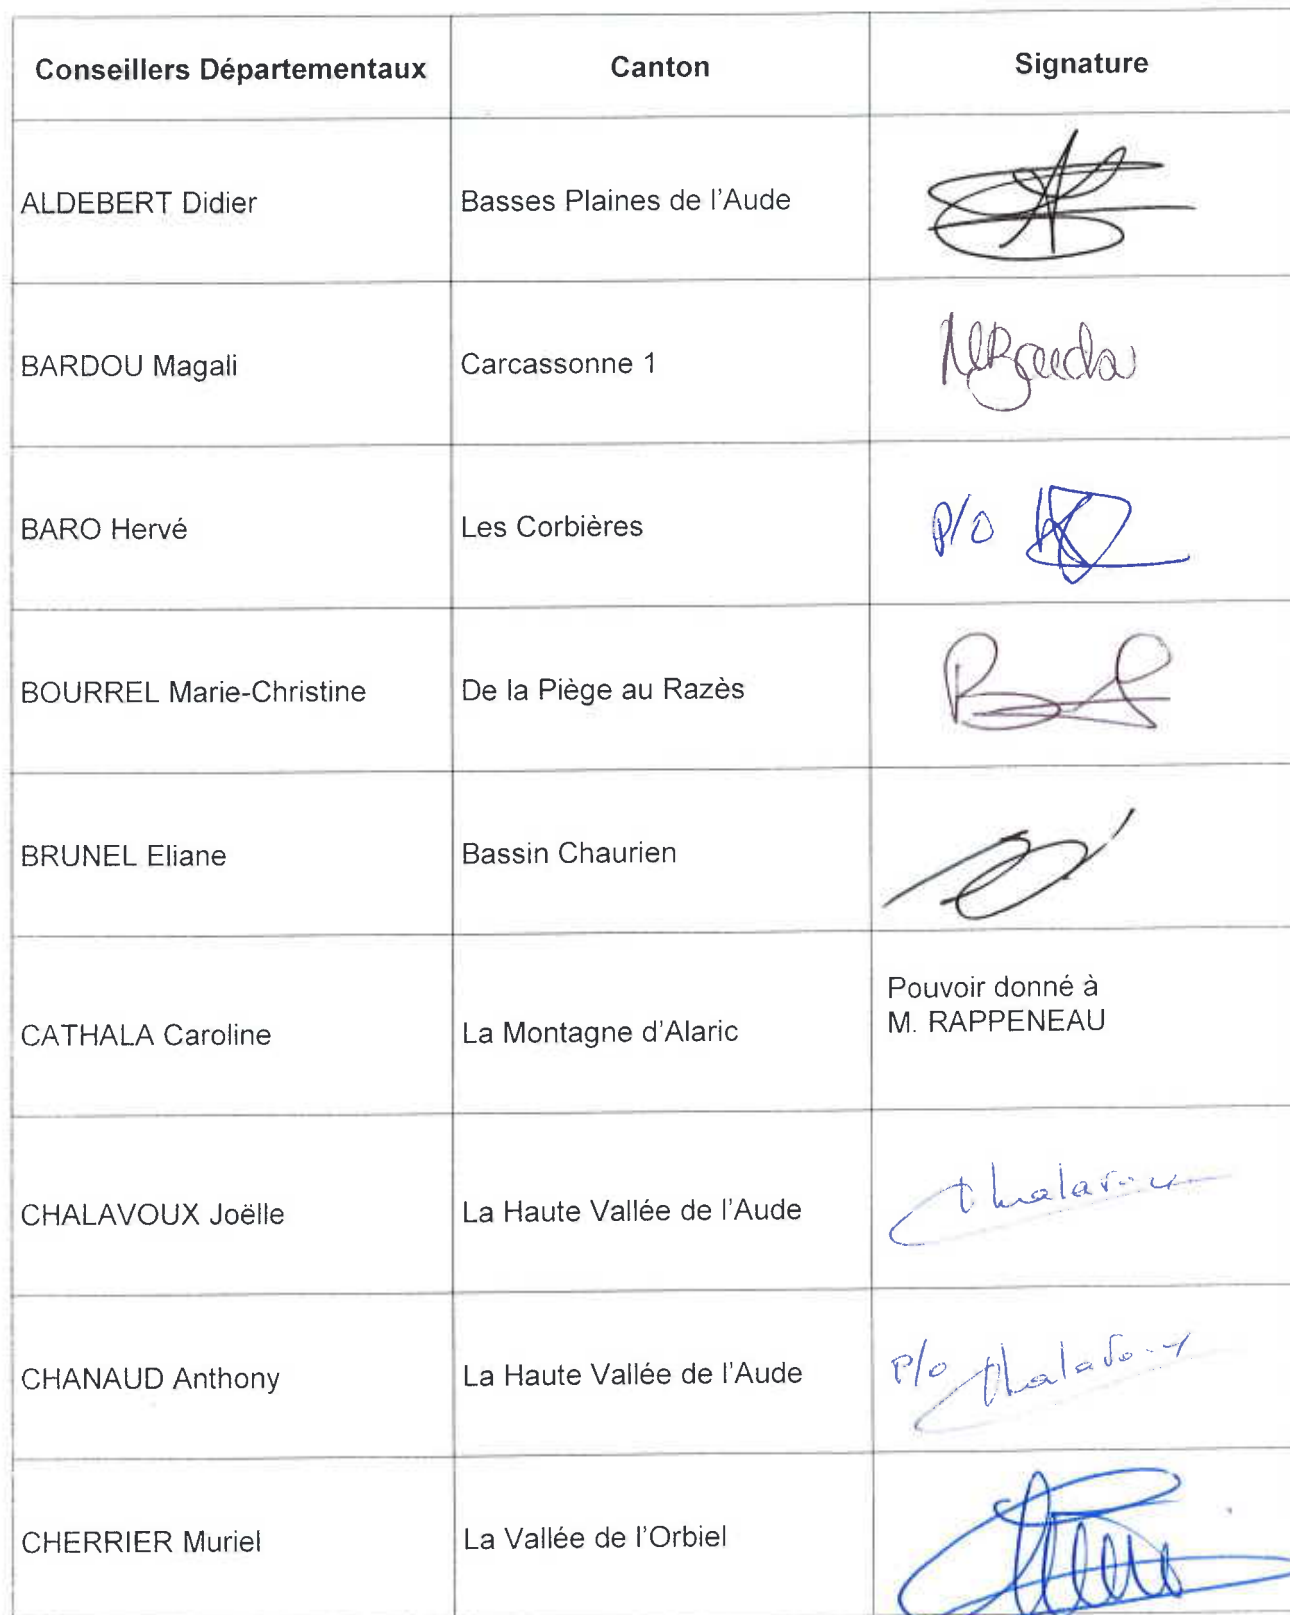 Conseillers Départementaux Canton Signature
ALDEBERT Didier Basses Plaines de l'Aude
BARDOU Magali Carcassonne 1
BARO Hervé Les Corbières P/O
BOURREL Marie-Christine De la Piège au Razès
BRUNEL Eliane Bassin Chaurien
CATHALA Caroline La Montagne d'Alaric Pouvoir donné à
M. RAPPENEAU
CHALAVOUX Joëlle La Haute Vallée de l'Aude Chalavoux
CHANAUD Anthony La Haute Vallée de l'Aude P/o Chalavoux
CHERRIER Muriel La Vallée de l'Orbiel